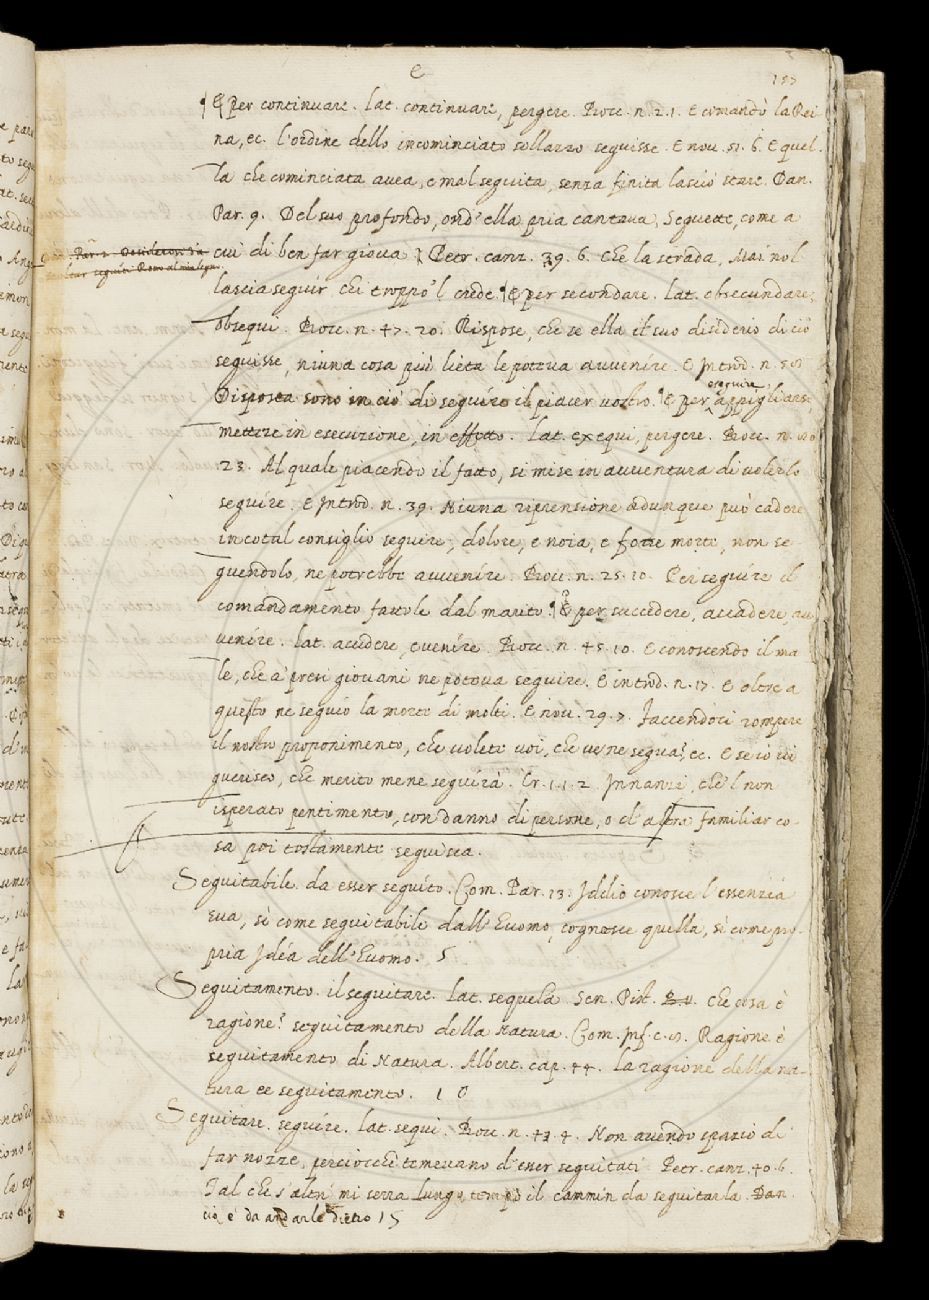 e
¶ E per continuare. Lat. continuare, pergere. Bocc. n. 2. 1. E comandò la Rei
na, ec. l'ordine dello incominciato sollazzo seguisse. E nov. 51. 6. E quel-
la che cominciata avea, e mal seguita, senza finita lasciò stare. Dan.
Par. 9. Del suo profondo, ond'ella pria cantava, Seguette, come a
cui di ben far giova. Petr. canz. 39. 6. Che la strada, Mai nol
lascia seguir chi troppo 'l crede. ¶ E per secondare. Lat. obsecundare,
obsequi. Bocc. n. 47. 20. Rispose, che se ella il suo disiderio di ciò
seguisse, niuna cosa più lieta le poteva avvenire. E Introd. n. 50.
Disposta sono in ciò di seguire il piacer vostro. ¶ E per eseguire, appigliarsi
mettere in esecuzione, in effetto. Lat. exequi, pergere. Bocc. n.
23. Al quale piacendo il fatto, si mise in avventura di volerlo
seguire. E Introd. n. 39. Niuna riprensione adunque può cadere
in cotal consiglio seguire, dolore, e noia, e forse morte, non se-
guendolo, ne potrebbe avvenire. Bocc. n. 25. 10. Per seguire il
comandamento fattole dal marito. ¶ E per succedere, accadere, av
venire. Lat. accidere, evenire. Bocc. n. 45. 10. E conoscendo il ma
le, che a' presi giovani ne poteva seguire. E introd. n. 17. E oltre a
questo ne seguio la morte di molti. E nov. 29. 7. Faccendoci rompere
il nostro proponimento, che volete voi, che ve ne segua? ec. E se io vi
guerisco, che merito me ne seguirà. Cr. 1. 1. 2. Innanzi, che 'l non
isperato pentimento, con danno di persone, o d'altra familiar co-
sa poi tostamente seguisca.
Seguitabile. da esser seguito. Com. Par. 13. Iddio conosce l'essenzia
sua, sì come seguitabile dall'Euomo, cognosce quella, sì come pro-
pria Idéa dell'Euomo. 5
Seguitamento. il seguitare. Lat. sequela. Sen. Pist. Che cosa è
ragione? seguitamento della Natura. Com. Inf. c. Ragione è
seguitamento di Natura. Albert. cap. 44. La ragione della na-
tura ee seguitamento. 1 0
Seguitare. seguire. Lat. sequi. Bocc. n. 43. 4. Non avendo spazio di
far nozze, perciocchè temevano d'esser seguitati. Petr. canz. 40. 6.
Tal che s'altri mi serra Lungo tempo il cammin da seguitarla. Dan
ciò, è da andarle dietro 15